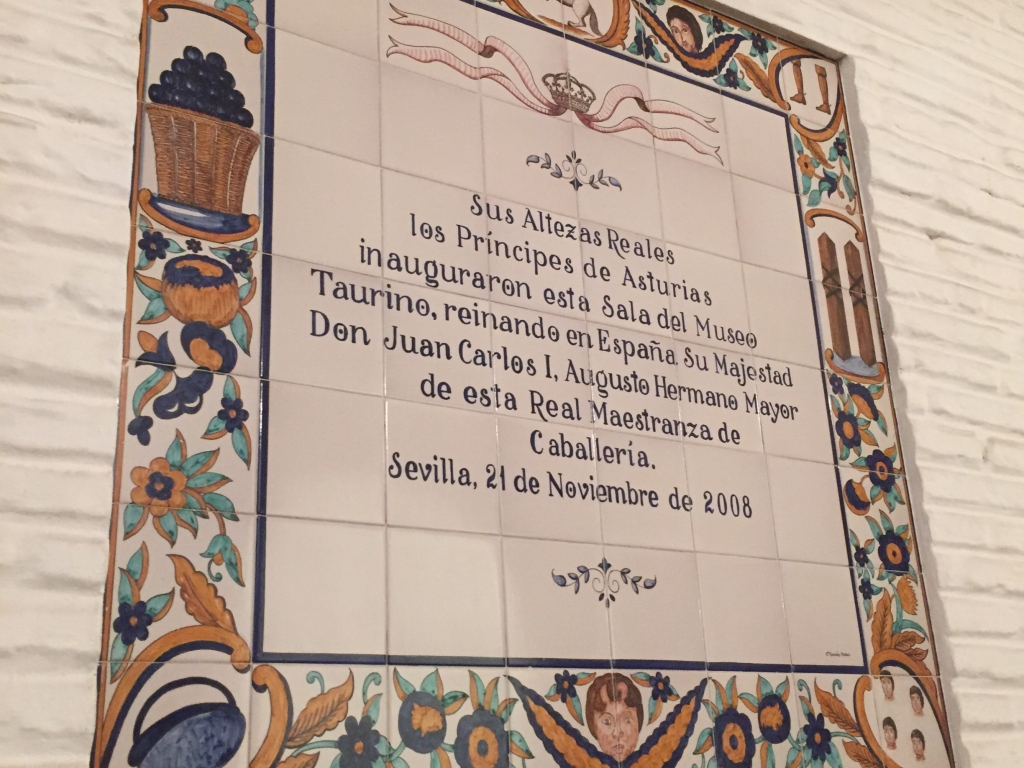 Sus Altezas Reales
los Príncipes de Asturias
inauguraron esta Sala del Museo
Taurino, reinando en España Su Majestad
Don Juan Carlos I, Augusto Hermano Mayor
de esta Real Maestranza de
Caballería.
Sevilla, 21 de Noviembre de 2008